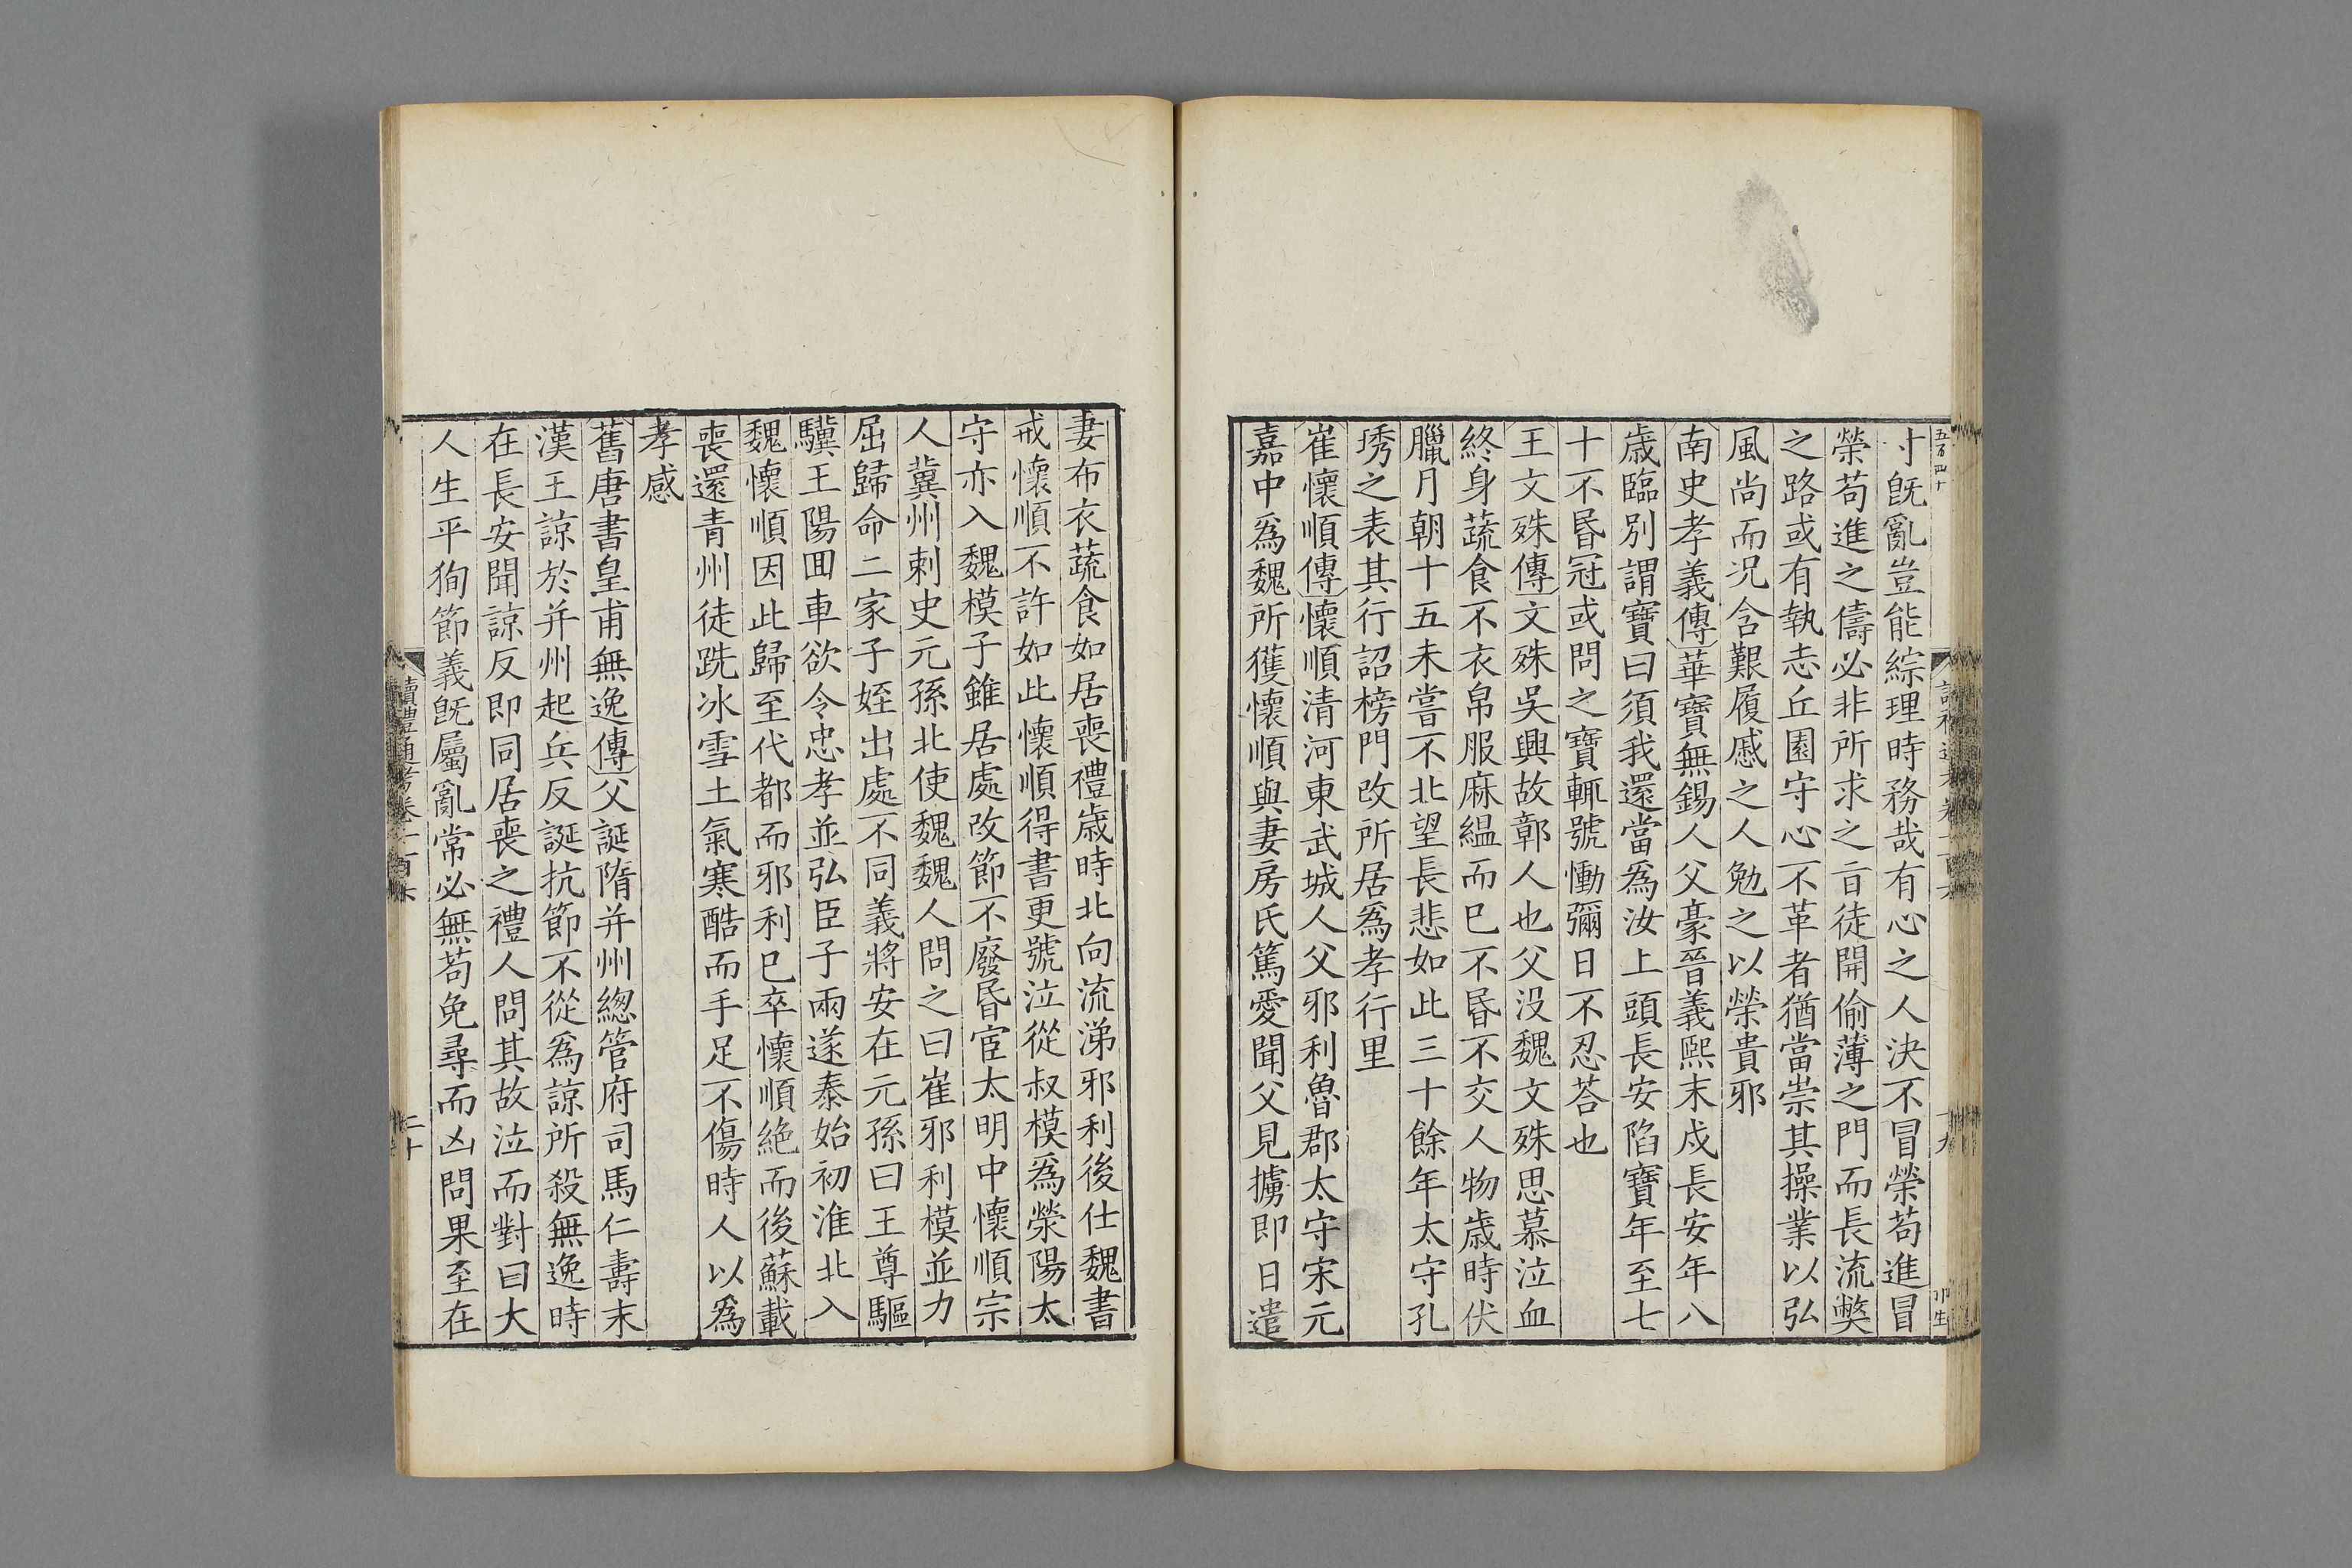 五百四十
讀禮通考卷一百六
十九
寸既亂豈能綜理時務哉有心之人決不冒榮苟進冒
榮苟進之儔必非所求之㫖徒開偷薄之門而長流獘
之路或有執志丘園守心不革者猶當崇其操業以弘
風尚而况含艱履慼之人勉之以榮貴邪
南史孝義傳華寶無錫人父豪晉義熙末戍長安年八
歲臨別謂寶曰須我還當爲汝上頭長安陷寶年至七
十不昏冠或問之寶輒號慟彌日不忍荅也
王文殊傳文殊吳興故鄣人也父没魏文殊思慕泣血
終身蔬食不衣帛服麻緼而已不昏不交人物歲時伏
臘月朝十五未嘗不北望長悲如此三十餘年太守孔
琇之表其行詔榜門改所居爲孝行里
崔懷順傳懷順清河東武城人父邪利魯郡太守宋元
嘉中爲魏所獲懷順與妻房氏篤愛聞父見擄即日遣
妻布衣蔬食如居喪禮歲時北向流涕邪利後仕魏書
戒懷順不許如此懷順得書更號泣從叔模爲滎陽太
守亦入魏模子雖居處改節不廢昏宦太明中懷順宗
人冀州刺史元孫北使魏魏人問之曰崔邪利模並力
屈歸命二家子姪出處不同義將安在元孫曰王尊驅
驥王陽囬車欲令忠孝並弘臣子兩遂泰始初淮北入
魏懷順因此歸至代都而邪利已卒懷順絶而後蘇載
喪還青州徒跣冰雪土氣寒酷而手足不傷時人以爲
孝感
舊唐書皇甫無逸傳父誕隋并州總管府司馬仁壽末
漢王諒於并州起兵反誕抗節不從爲諒所殺無逸時
在長安聞諒反即同居喪之禮人問其故泣而對曰大
人生平狥節義既屬亂常必無苟免尋而凶問果至在
讀禮通考卷一百六
二十